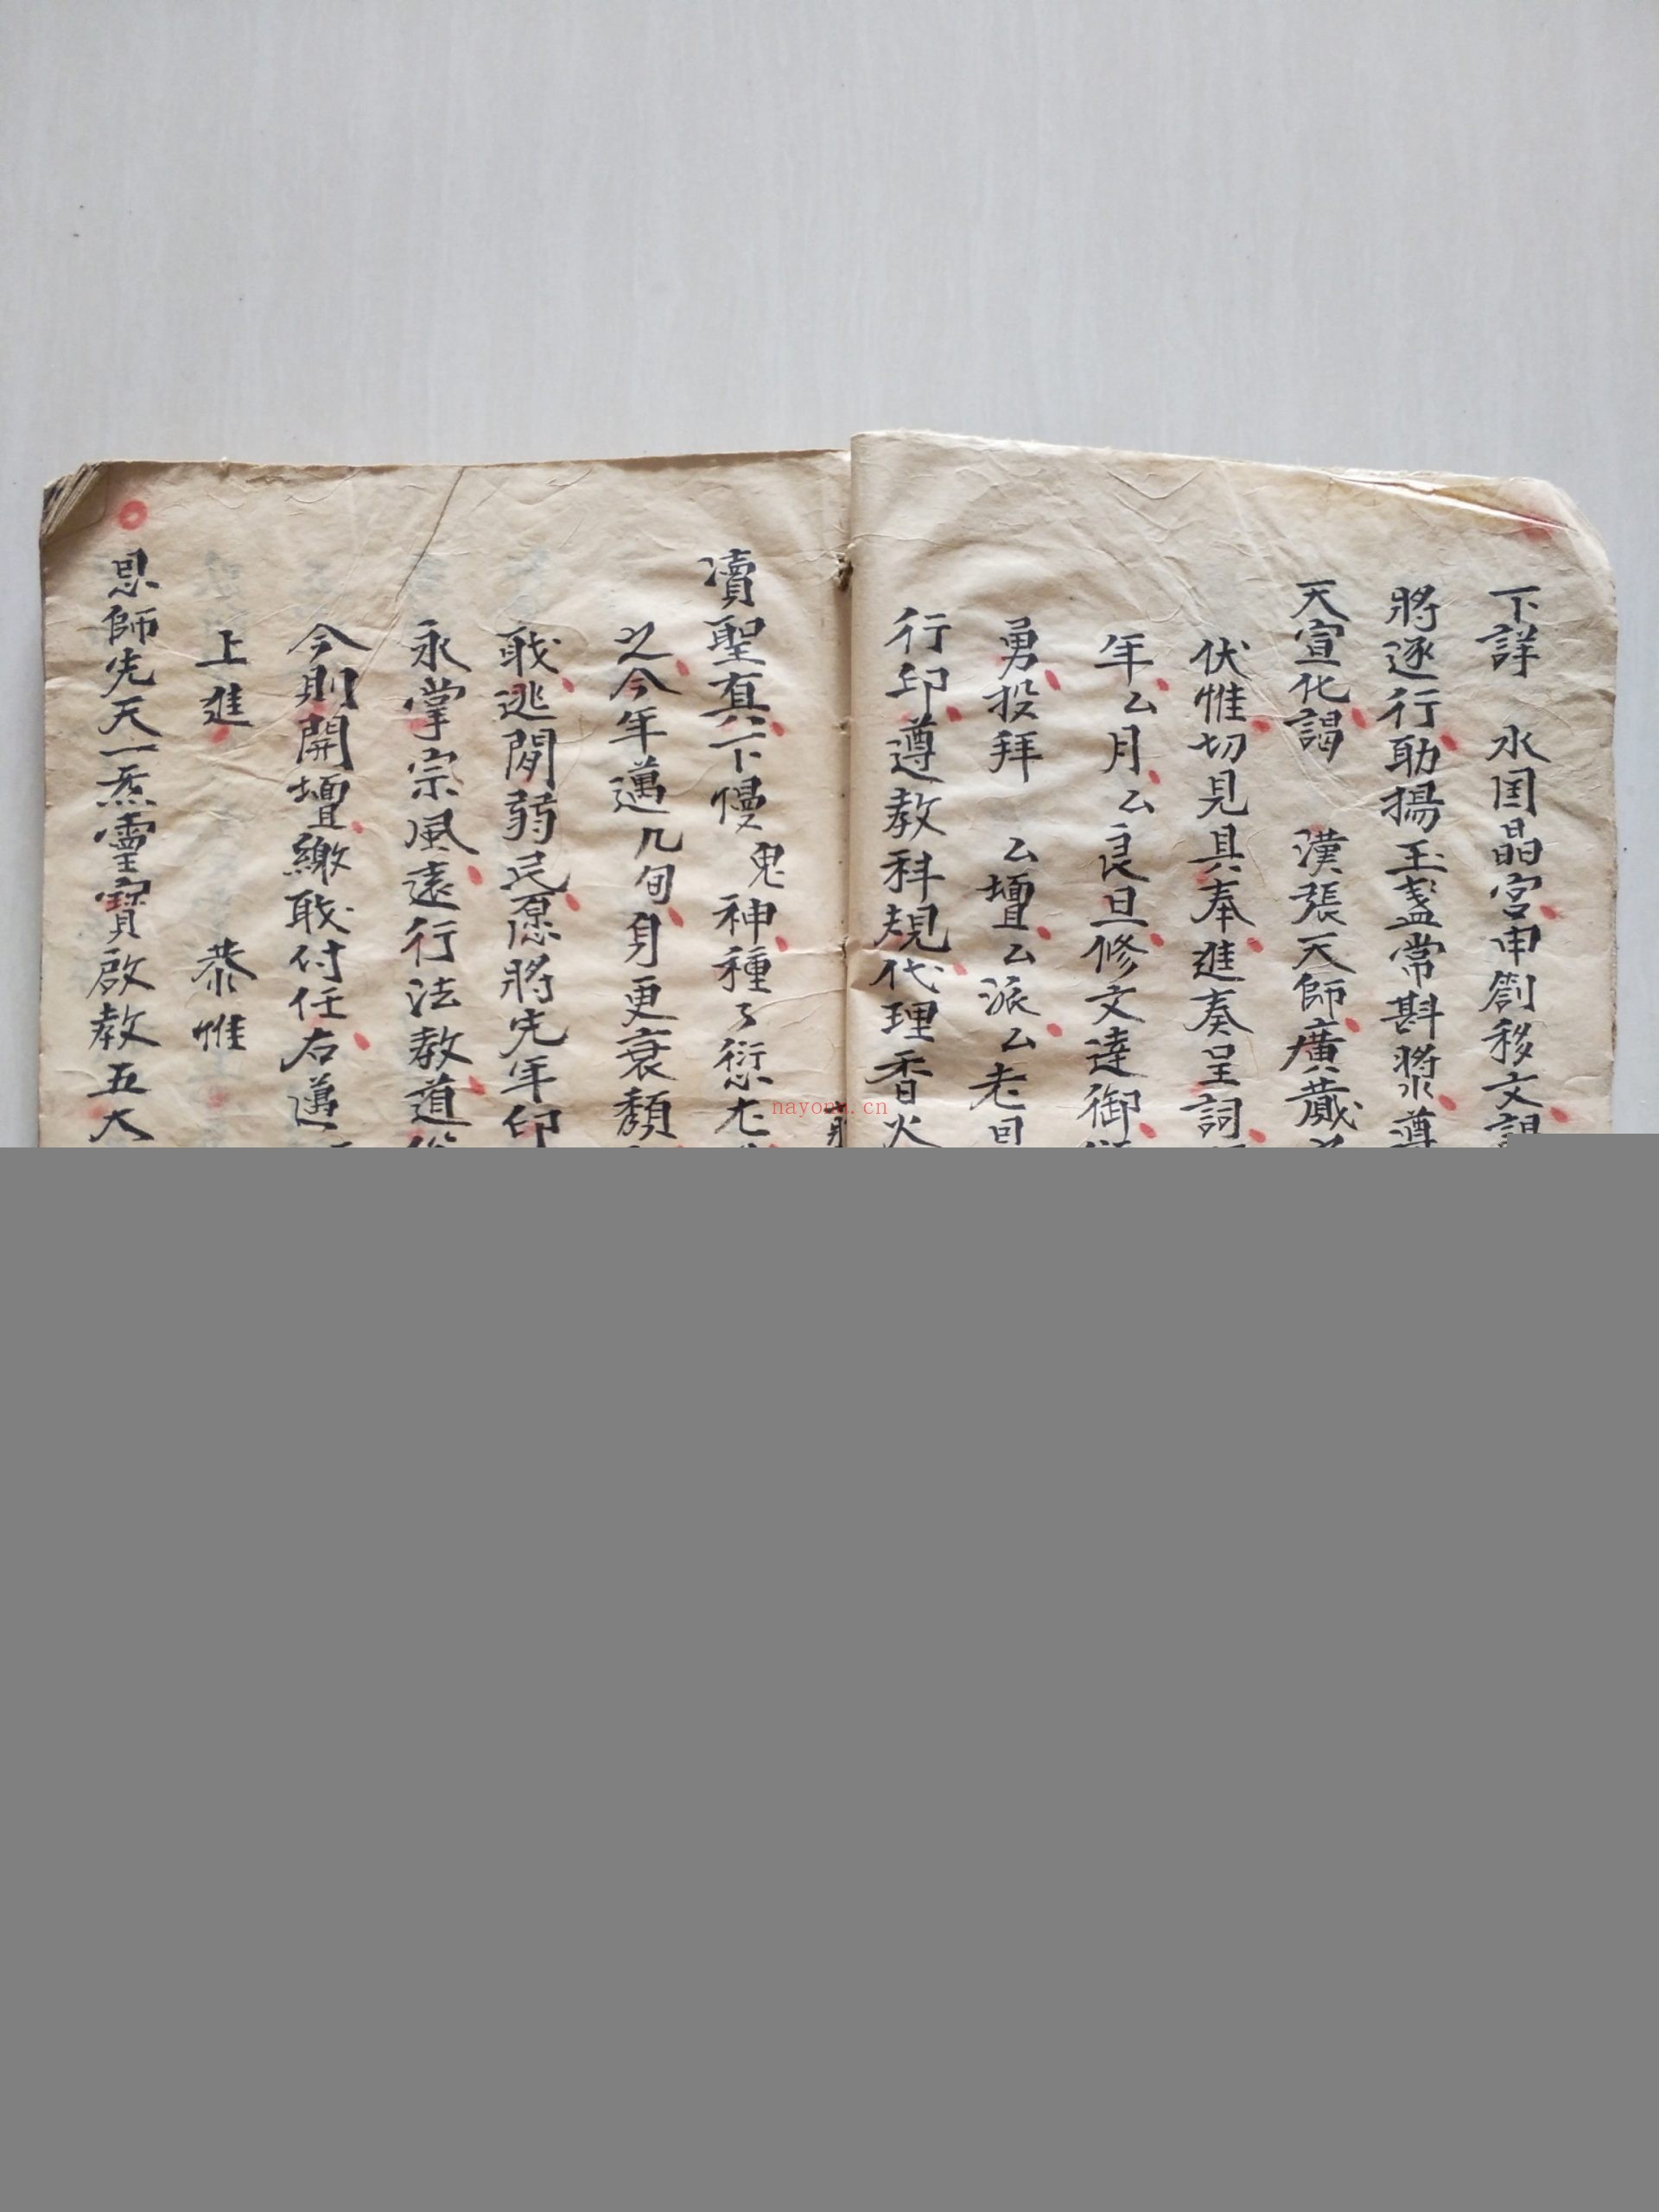 下詳　水国晶宮申劄移文謁
將逐行助揚玉盞常斟將永遵
天宣化謁　漢張天師廣蕆
伏惟切見具奉進奏呈詞
年厶月厶良旦修文達御
勇投拜　厶壇厶派厶老回
行印遵教科規代理香火
瀆聖真下慢鬼神種々愆尤
之今年邁几旬身更衰頹
戢逃閒弱民愿將先年印
永掌宗風遠行法教道
今則開壇繳戢付任右邁
上進　恭惟
恩師先天一炁靈寶啟教五大
nayona.cn